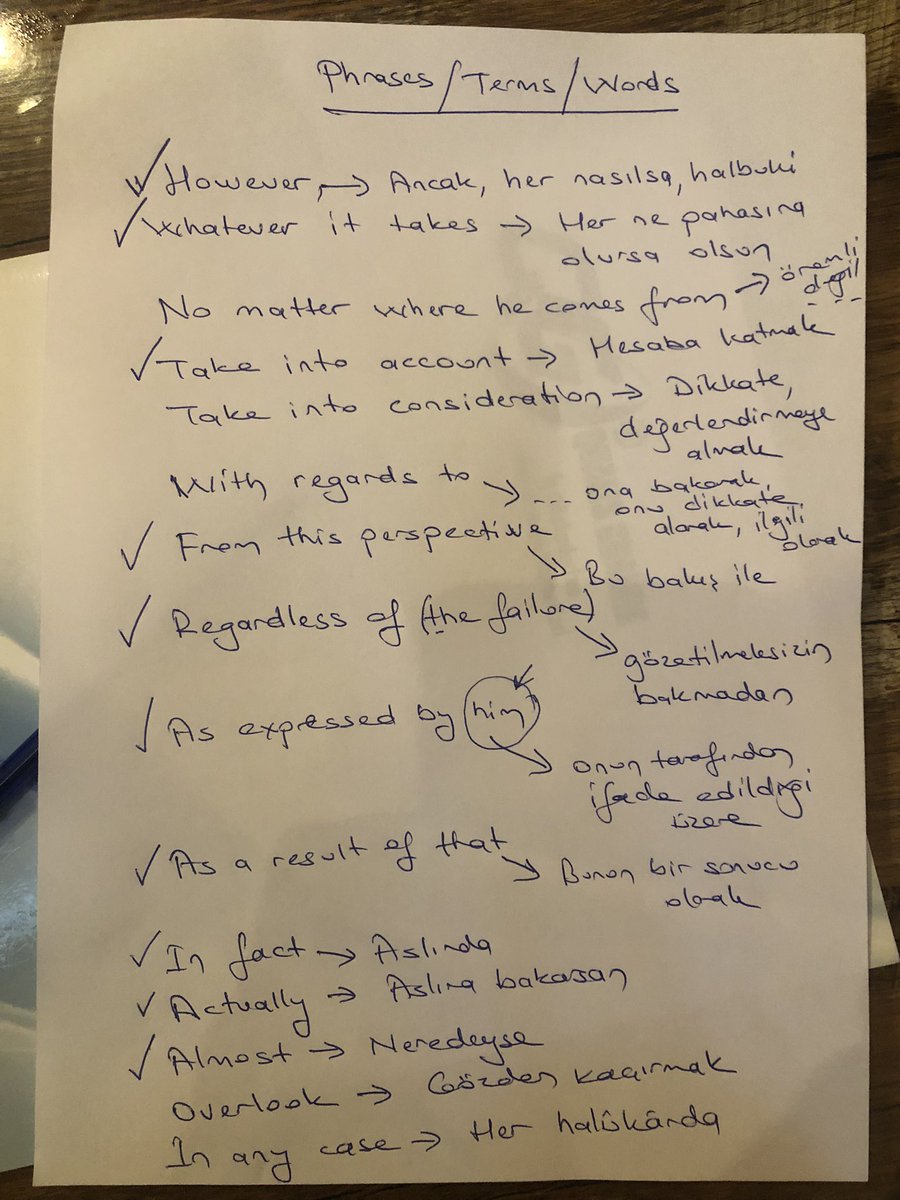 Phrases/Terms/Words
✓ However, → Ancak, her nasılsa, halbuki
✓ Whatever it takes → Her ne pahasına
olursa olsun
No matter where he comes from → önemli
değil
✓ Take into account → Hesaba katmak
Take into consideration → Dikkate,
değerlendirmeye
almak
With regards to → ... ona bakarak,
onu dikkate
alarak, ilgili
olarak
✓ From this perspective
→ Bu bakış ile
✓ Regardless of (the failure)
→ gözetilmeksizin
bakmadan
✓ As expressed by him
→ onun tarafından
ifade edildiği
üzere
✓ As a result of that
→ Bunun bir sonucu
olarak
✓ In fact → Aslında
✓ Actually → Aslına bakarsan
✓ Almost → Neredeyse
Overlook → Gözden kaçırmak
In any case → Her halükârda